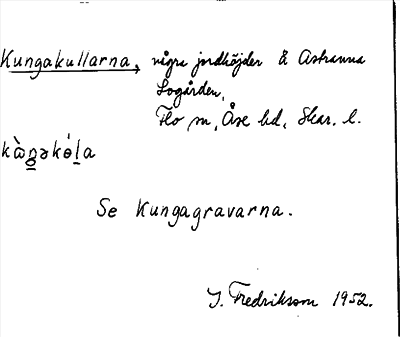 Kungakullarna, några jordhöjder å Astranna
Logården,
Flo sn, Åse hd, Skar. l.
kὼŋəkɵ́la
Se Kungagravarna.
I. Fredriksson 1952.